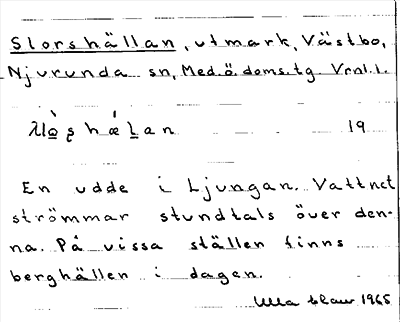 Slorshällan, utmark, Västbo,
Njurunda sn, Med. ö. doms. tg. Vrnl. l.
19
En udde i Ljungan. Vattnet
strömmar stundtals över den-
na. På vissa ställen finns
berghällen i dagen.
Ulla 1965